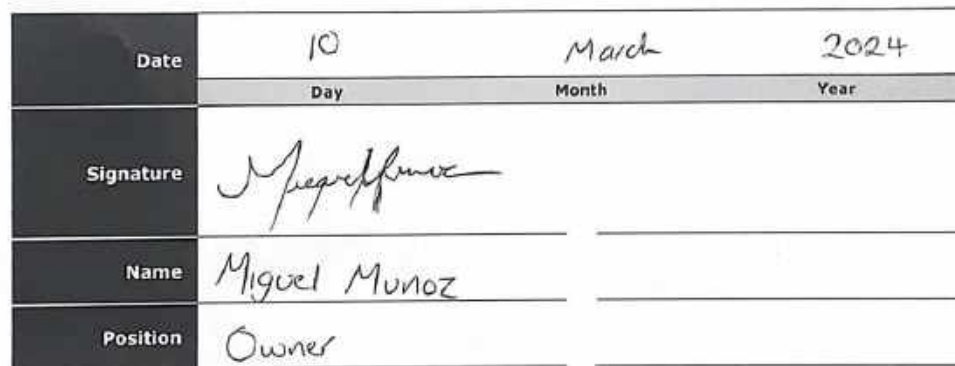 Date 10 March 2024
Day Month Year
Signature Miguel Munoz
Name Miguel Munoz
Position Owner